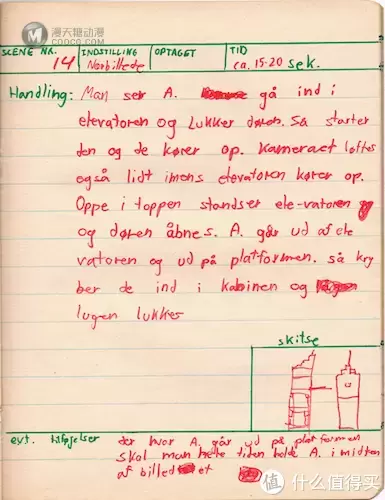 漫天糖动漫
COOCO.COM
SCENE NR. 14 INDSTILLING Nærbillede OPTAGET TID ca. 15-20 sek.
Handling: Man ser A. gå ind i
elevatoren og lukker døren. Så starter
den og de kører op. Kameraet løftes
også lidt imens elevatoren kører op.
Oppe i toppen standser ele-vatoren
og døren åbnes. A. går ud af ele
vatoren og ud på platformen. så kry
ber de ind i kabinen og
lugen lukker
skitse
evt. tilføjelser der hvor A. går ud på platformen
skal man hele tiden holde A. i midten
af billed et
值 什么值得买